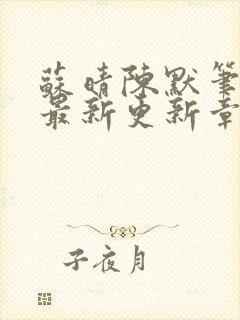 蘇晴陳默筆
最新更新章
子夜月